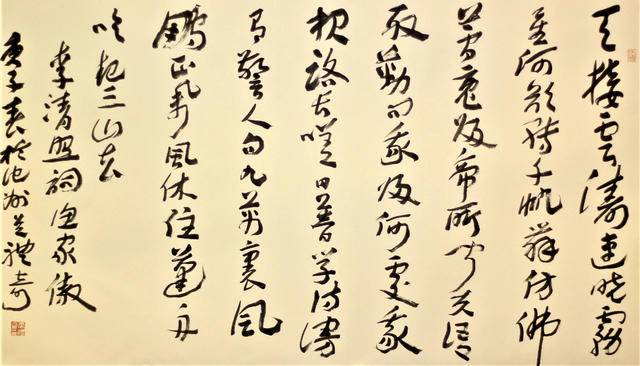 天接雲濤連曉霧
星河欲轉千帆舞仿佛
夢魂歸帝所聞天語
殷勤問我歸何處我
報路長嗟日暮學詩謾
有驚人句九萬裏風
鵬正舉風休住蓬舟
吹起三山去
李清照詞漁家傲
庚子春於池州